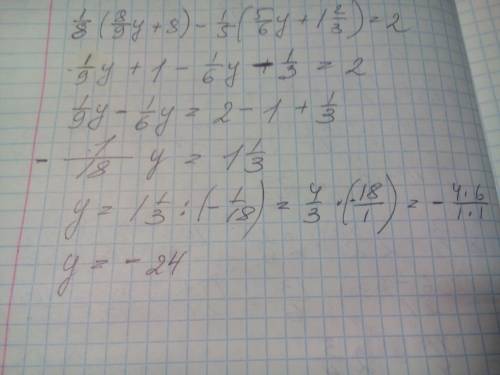 1/8 (8/9 y + 8) - 1/5 (5/6 y + 1 2/3) = 2
1/9 y + 1 - 1/6 y - 1/3 = 2
1/9 y - 1/6 y = 2 - 1 + 1/3
- 1/18 y = 1 1/3
y = 1 1/3 : (- 1/18) = 4/3 · (-18/1) = - 4·6/1·1
y = - 24